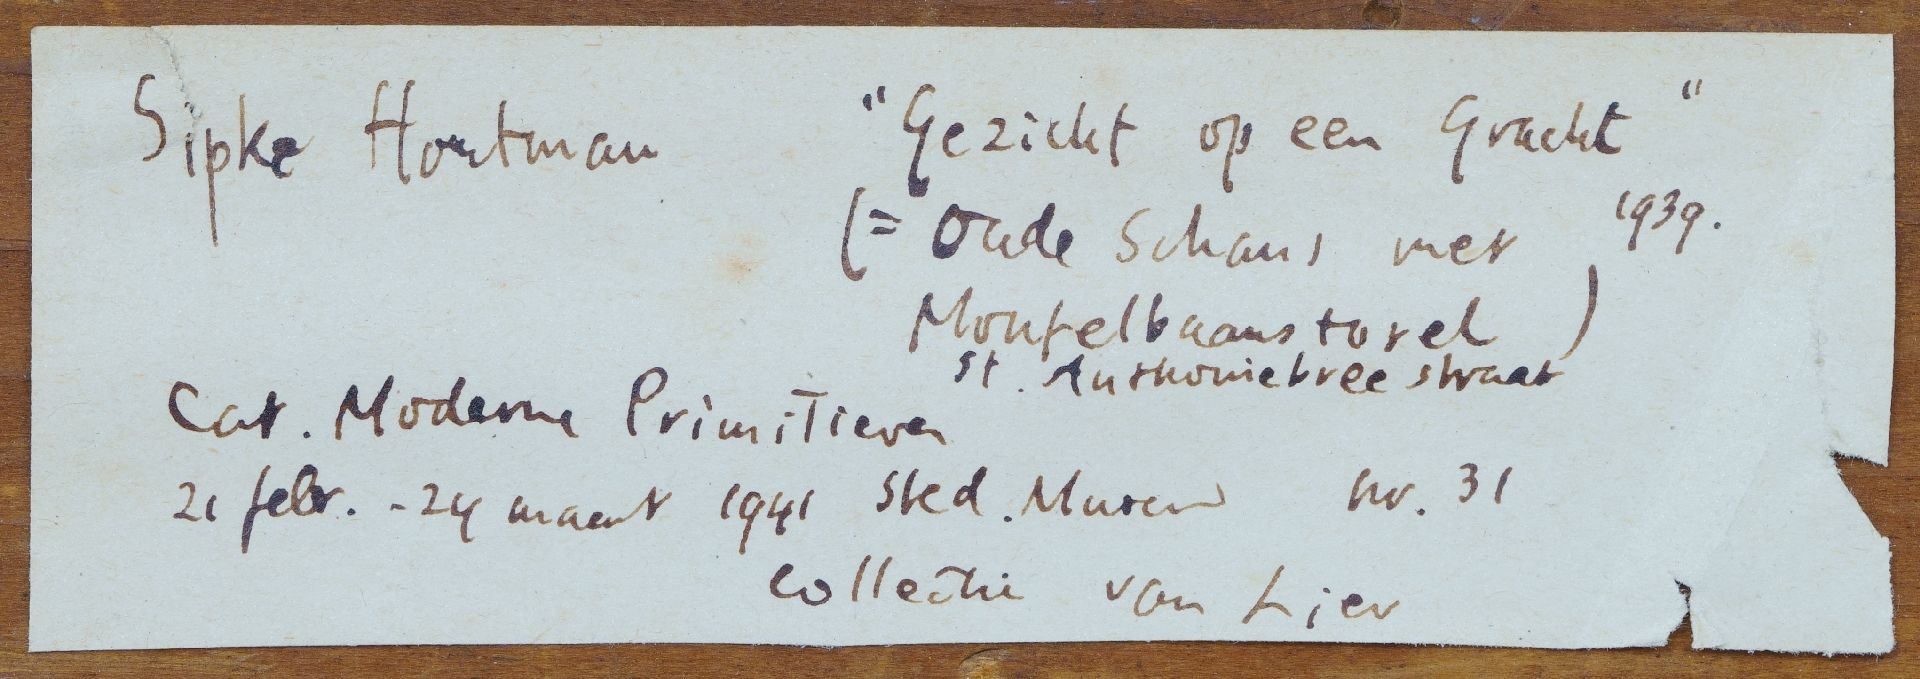 Sipke Houtman "Gezicht op een Gracht"
(= Oude Schans met 1939.
Montelbaanstoren)
St. Anthoniebreestraat
Cat. Moderne Primitieven
21 febr. - 24 maart 1941 Sted. Museum nr. 31
Collectie van Lier